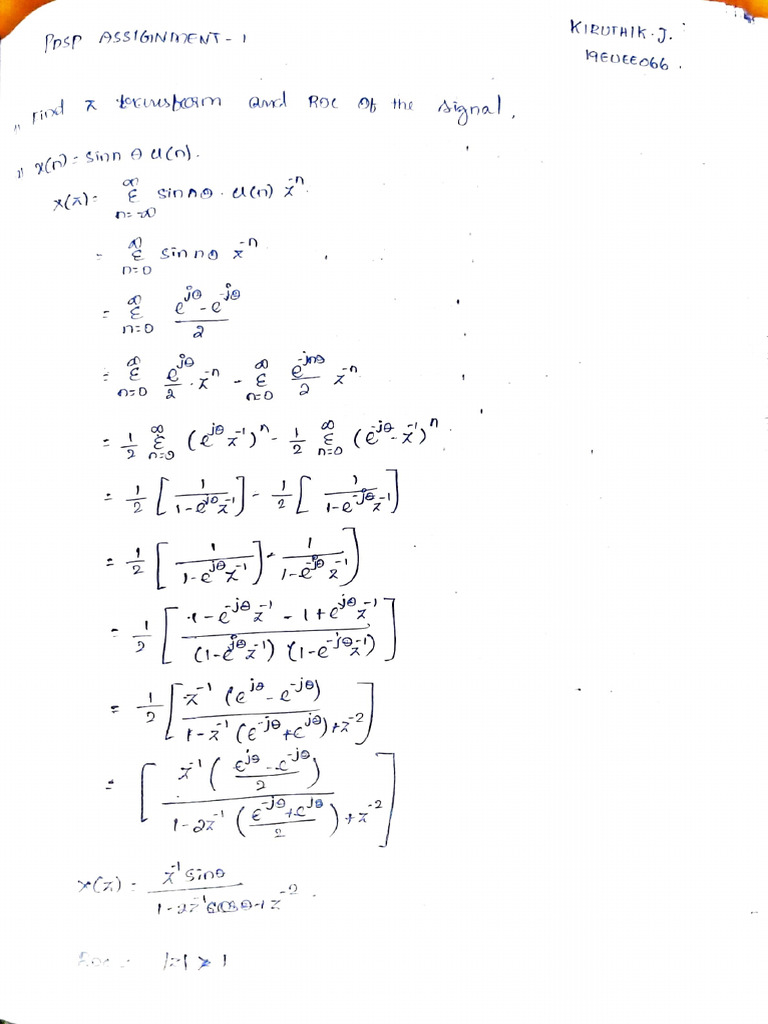 PDSP ASSIGINMENT - 1
KIRUTHIK. J.
19EUEE066.
1) Find z transform and ROC of the signal.
1) x(n) = sinn θ u(n).
x(z) = Σ_{n=-∞}^{∞} sin nθ . u(n) z^{-n}.
= Σ_{n=0}^{∞} sin nθ z^{-n}
= Σ_{n=0}^{∞} (e^{jθ} - e^{-jθ})/2
= Σ_{n=0}^{∞} e^{jθ}/2 . z^{-n} - Σ_{n=0}^{∞} e^{-jnθ}/2 z^{-n}.
= 1/2 Σ_{n=0}^{∞} (e^{jθ} z^{-1})^n - 1/2 Σ_{n=0}^{∞} (e^{-jθ} - z^{-1})^n.
= 1/2 [1/(1-e^{jθ}z^{-1})] - 1/2 [1/(1-e^{-jθ}z^{-1})]
= 1/2 [1/(1-e^{jθ}z^{-1})] - 1/(1-e^{-jθ}z^{-1})]
= 1/2 [(1-e^{-jθ}z^{-1} - 1+e^{jθ}z^{-1})/((1-e^{jθ}z^{-1}) (1-e^{-jθ}z^{-1}))]
= 1/2 [z^{-1} (e^{jθ} - e^{-jθ})/(1-z^{-1} (e^{-jθ}+e^{jθ})+z^{-2})]
= [z^{-1} ((e^{jθ} - e^{-jθ})/2)/(1-2z^{-1} ((e^{-jθ}+e^{jθ})/2)+z^{-2})]
x(z) = z^{-1} sinθ/(1-2z^{-1}cosθ+z^{-2}).
ROC = |z| > 1